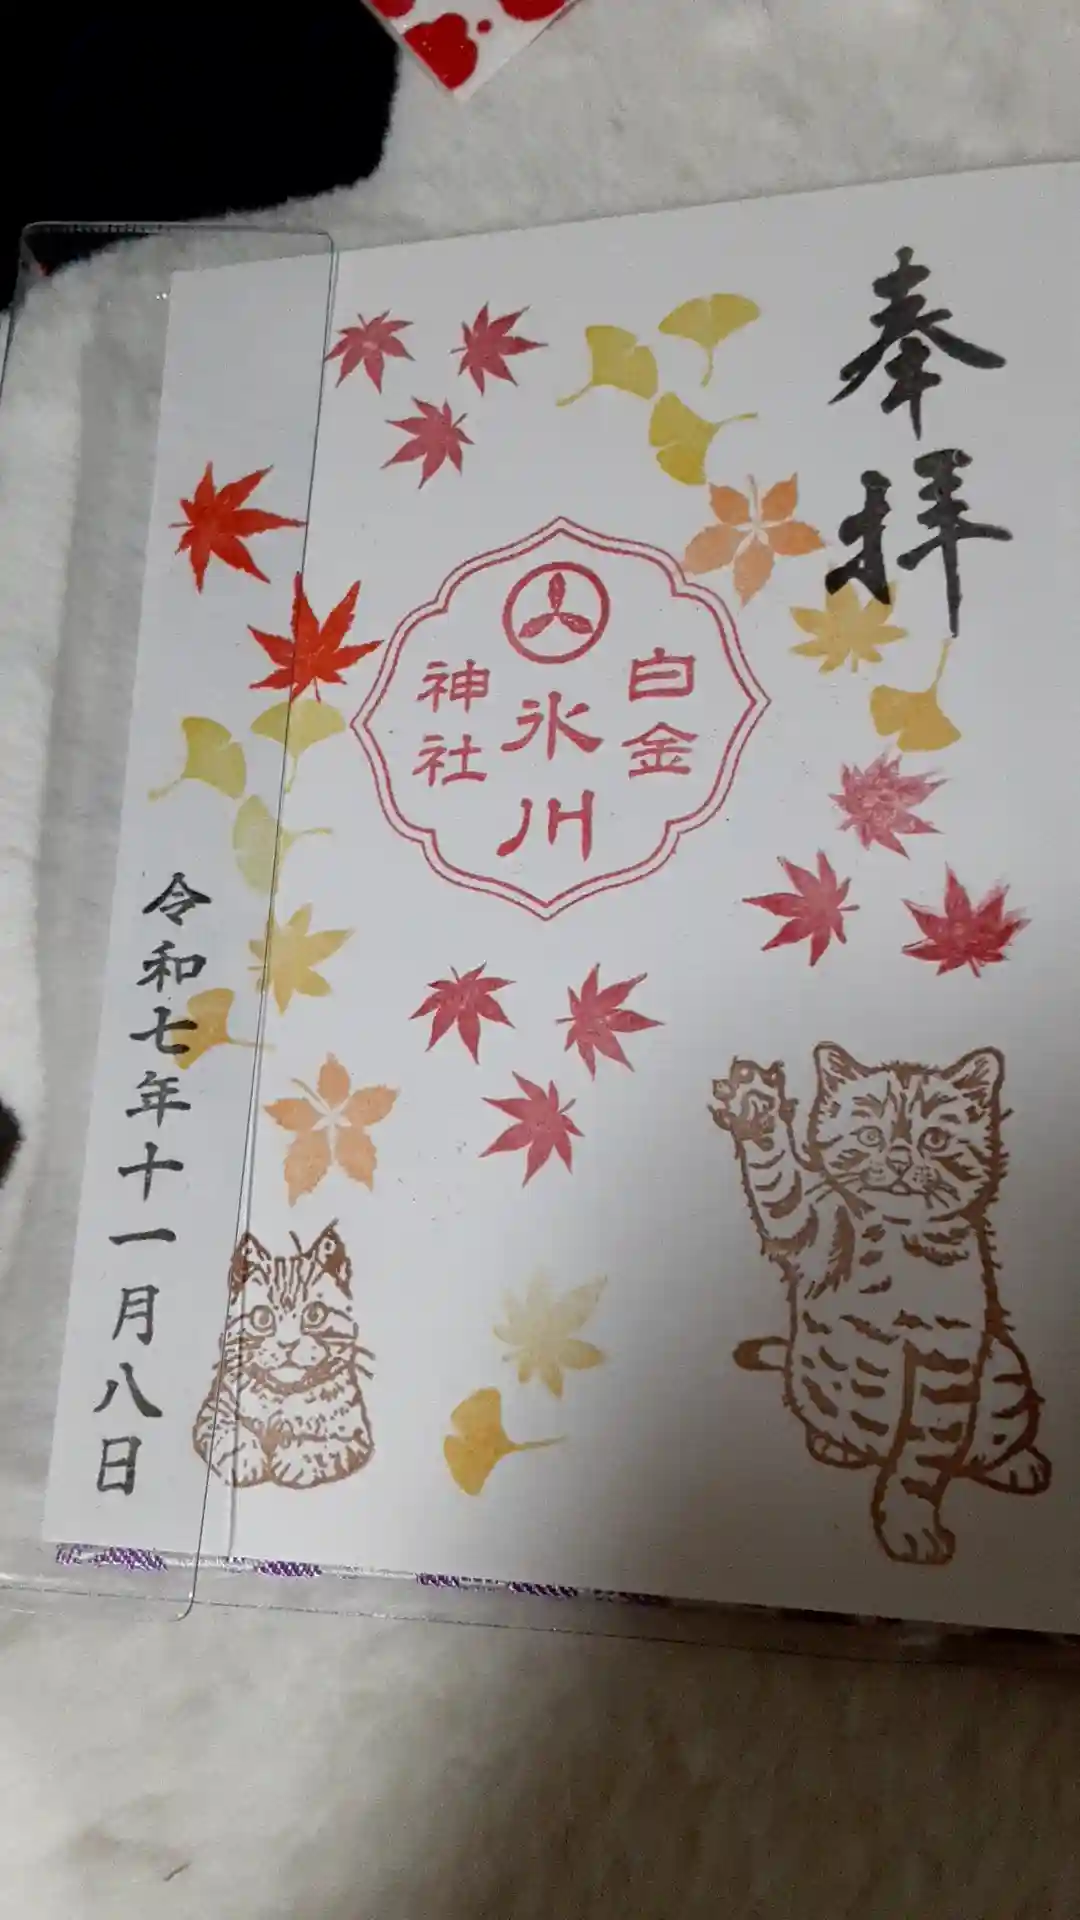 奉拝
白金
氷川
神社
令和七年十一月八日